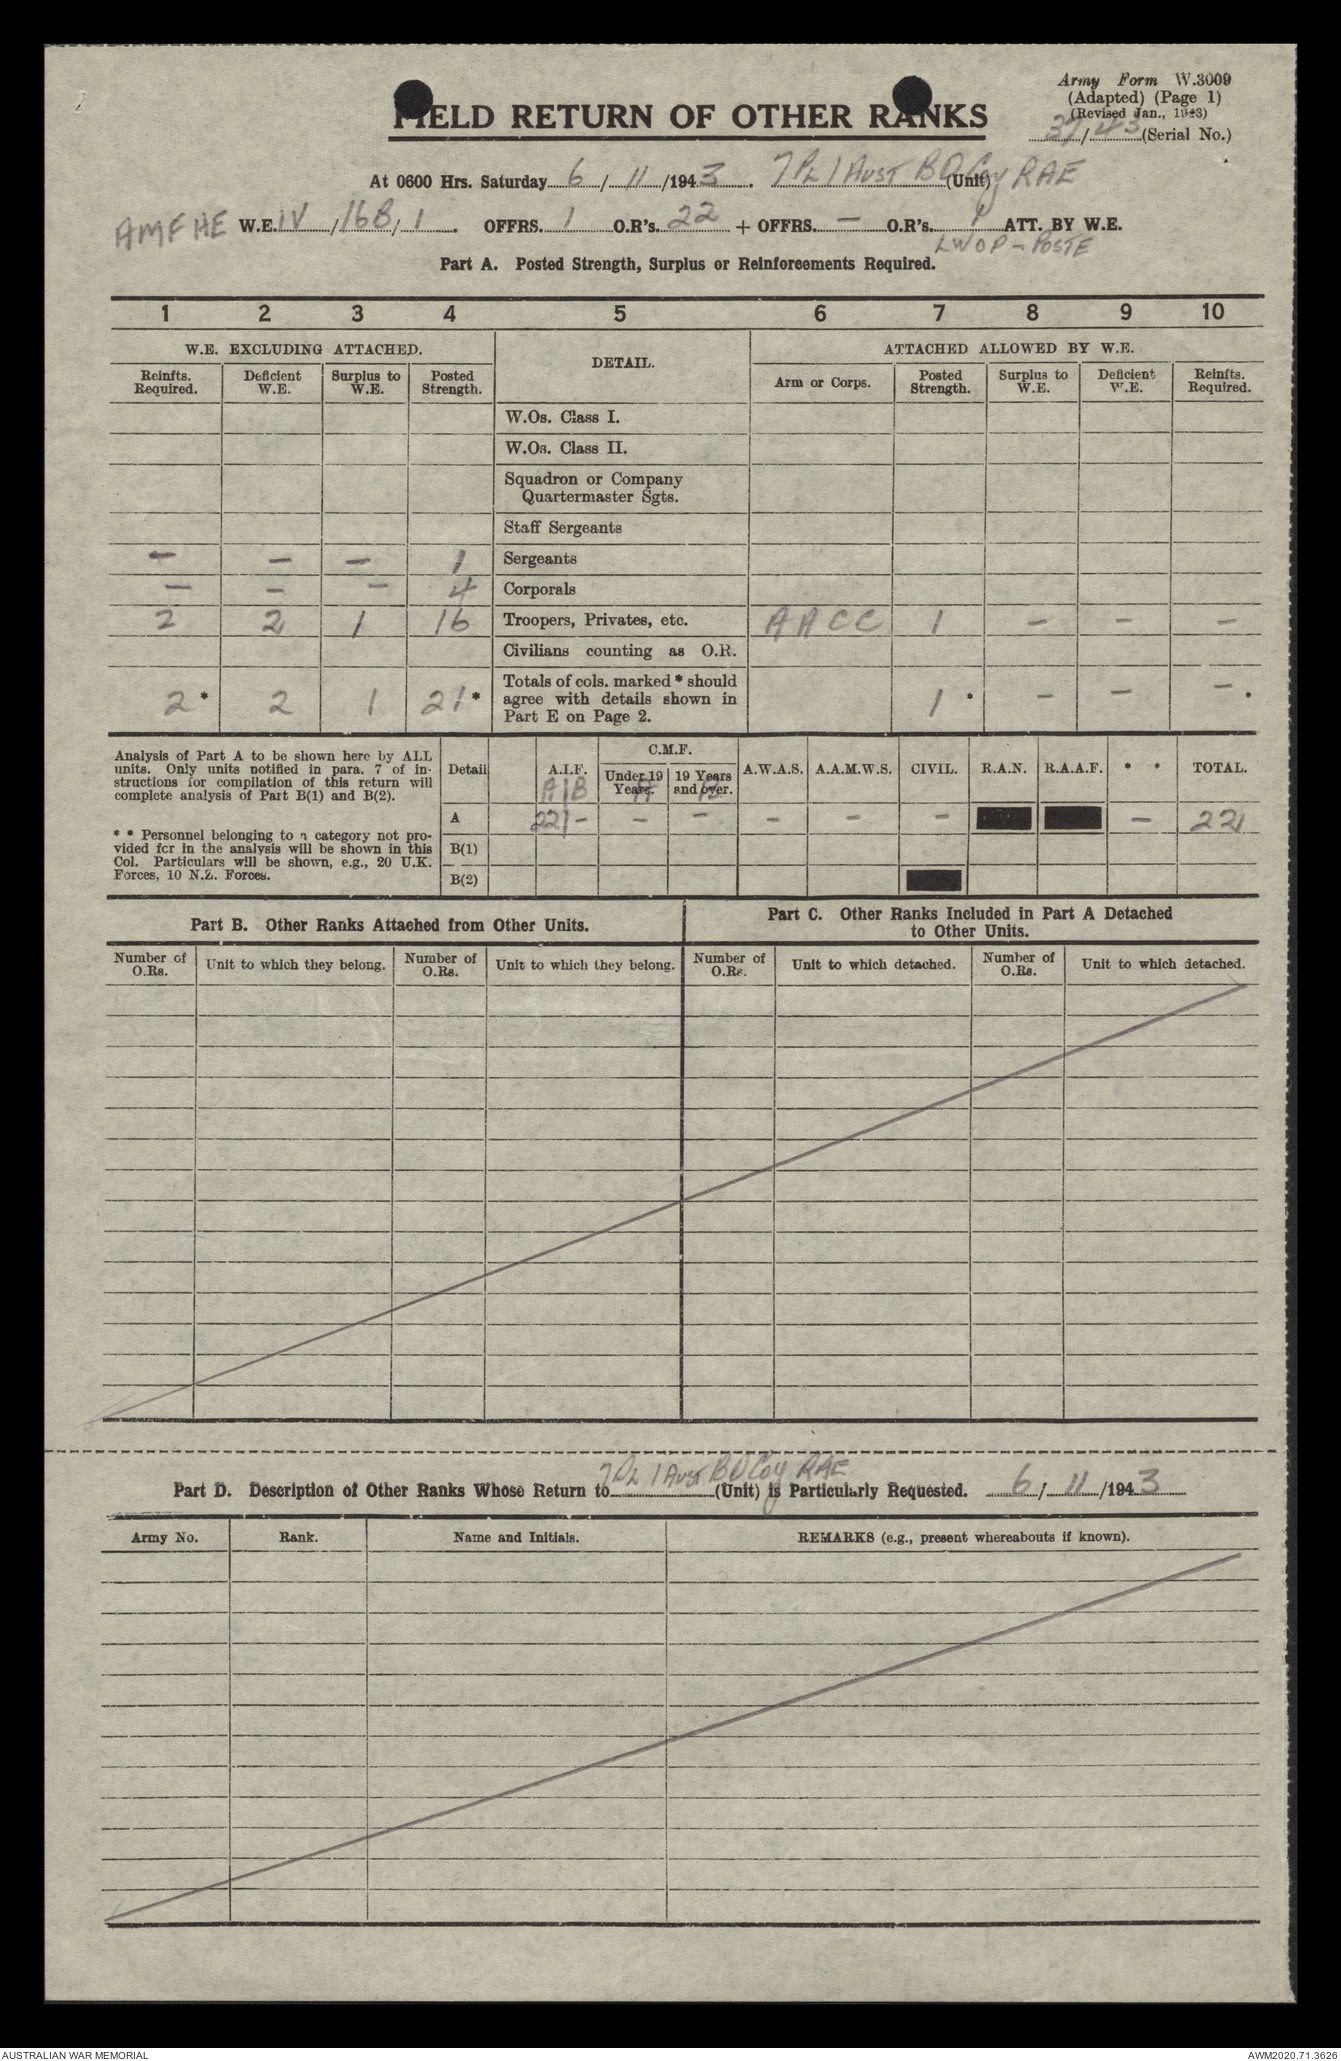 Army Form W.3009
(Adapted) (Page 1)
(Revised Jan., 1943)
37/43 (Serial No.)
FIELD RETURN OF OTHER RANKS
At 0600 Hrs. Saturday 6/11/1943. 7 PL 1 AUST BD Coy RAE (Unit)
AMFHE W.E. IV/16B/1. OFFRS. 1 O.R's. 22 + OFFRS. — O.R's. 1 ATT. BY W.E.
LWOP - POSTE
Part A. Posted Strength, Surplus or Reinforcements Required.
1 2 3 4 5 6 7 8 9 10
W.E. EXCLUDING ATTACHED. DETAIL. ATTACHED ALLOWED BY W.E.
Reinfts. Required. Deficient W.E. Surplus to W.E. Posted Strength. Arm or Corps. Posted Strength. Surplus to W.E. Deficient W.E. Reinfts. Required.
W.Os. Class I.
W.Os. Class II.
Squadron or Company
Quartermaster Sgts.
Staff Sergeants
— — — 1 Sergeants
— — — 4 Corporals
2 2 1 16 Troopers, Privates, etc. AACC 1 — — —
Civilians counting as O.R.
Totals of cols. marked * should
2* 2 1 21* agree with details shown in 1* — — —*
Part E on Page 2.
Analysis of Part A to be shown here by ALL
units. Only units notified in para. 7 of in-
structions for compilation of this return will
complete analysis of Part B(1) and B(2).
* * Personnel belonging to a category not pro-
vided for in the analysis will be shown in this
Col. Particulars will be shown, e.g., 20 U.K.
Forces, 10 N.Z. Forces.
C.M.F.
Detail A.I.F. Under 19 Years. 19 Years and over. A.W.A.S. A.A.M.W.S. CIVIL. R.A.N. R.A.A.F. * * TOTAL.
A|B A B
A 22|— — — — — — — 22
B(1)
B(2)
Part B. Other Ranks Attached from Other Units.
Part C. Other Ranks Included in Part A Detached
to Other Units.
Number of O.Rs. Unit to which they belong. Number of O.Rs. Unit to which they belong. Number of O.Rs. Unit to which detached. Number of O.Rs. Unit to which detached.
Part D. Description of Other Ranks Whose Return to 7 PL 1 AUST BD Coy RAE (Unit) is Particularly Requested. 6/11/1943
Army No. Rank. Name and Initials. REMARKS (e.g., present whereabouts if known).
AUSTRALIAN WAR MEMORIAL AWM2020.71.3626